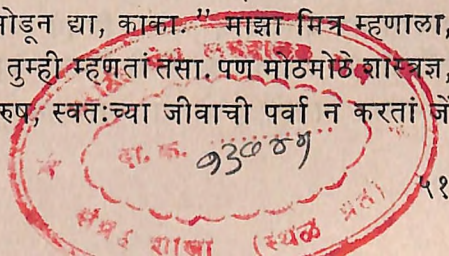 ोडून द्या, काका.” माझा मित्र म्हणाला,
तुम्ही म्हणतां तसा. पण मोठमोठे शास्त्रज्ञ,
रुष, स्वतःच्या जीवाची पर्वा न करतां जें
दा. क.
५१
शाखा (स्थळ प्रत)